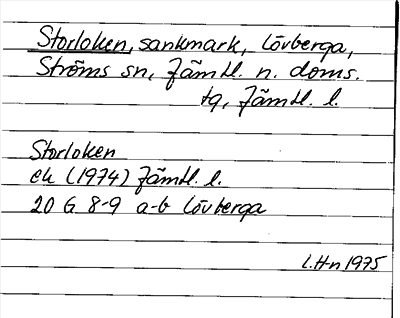 Storloken, sankmark, Lövberga,
Ströms sn, Jämtl. n. doms.
tg, Jämtl. l.
Storloken
ek (1974) Jämtl. l.
20 G 8-9 a-b Lövberga
L.H-n 1975